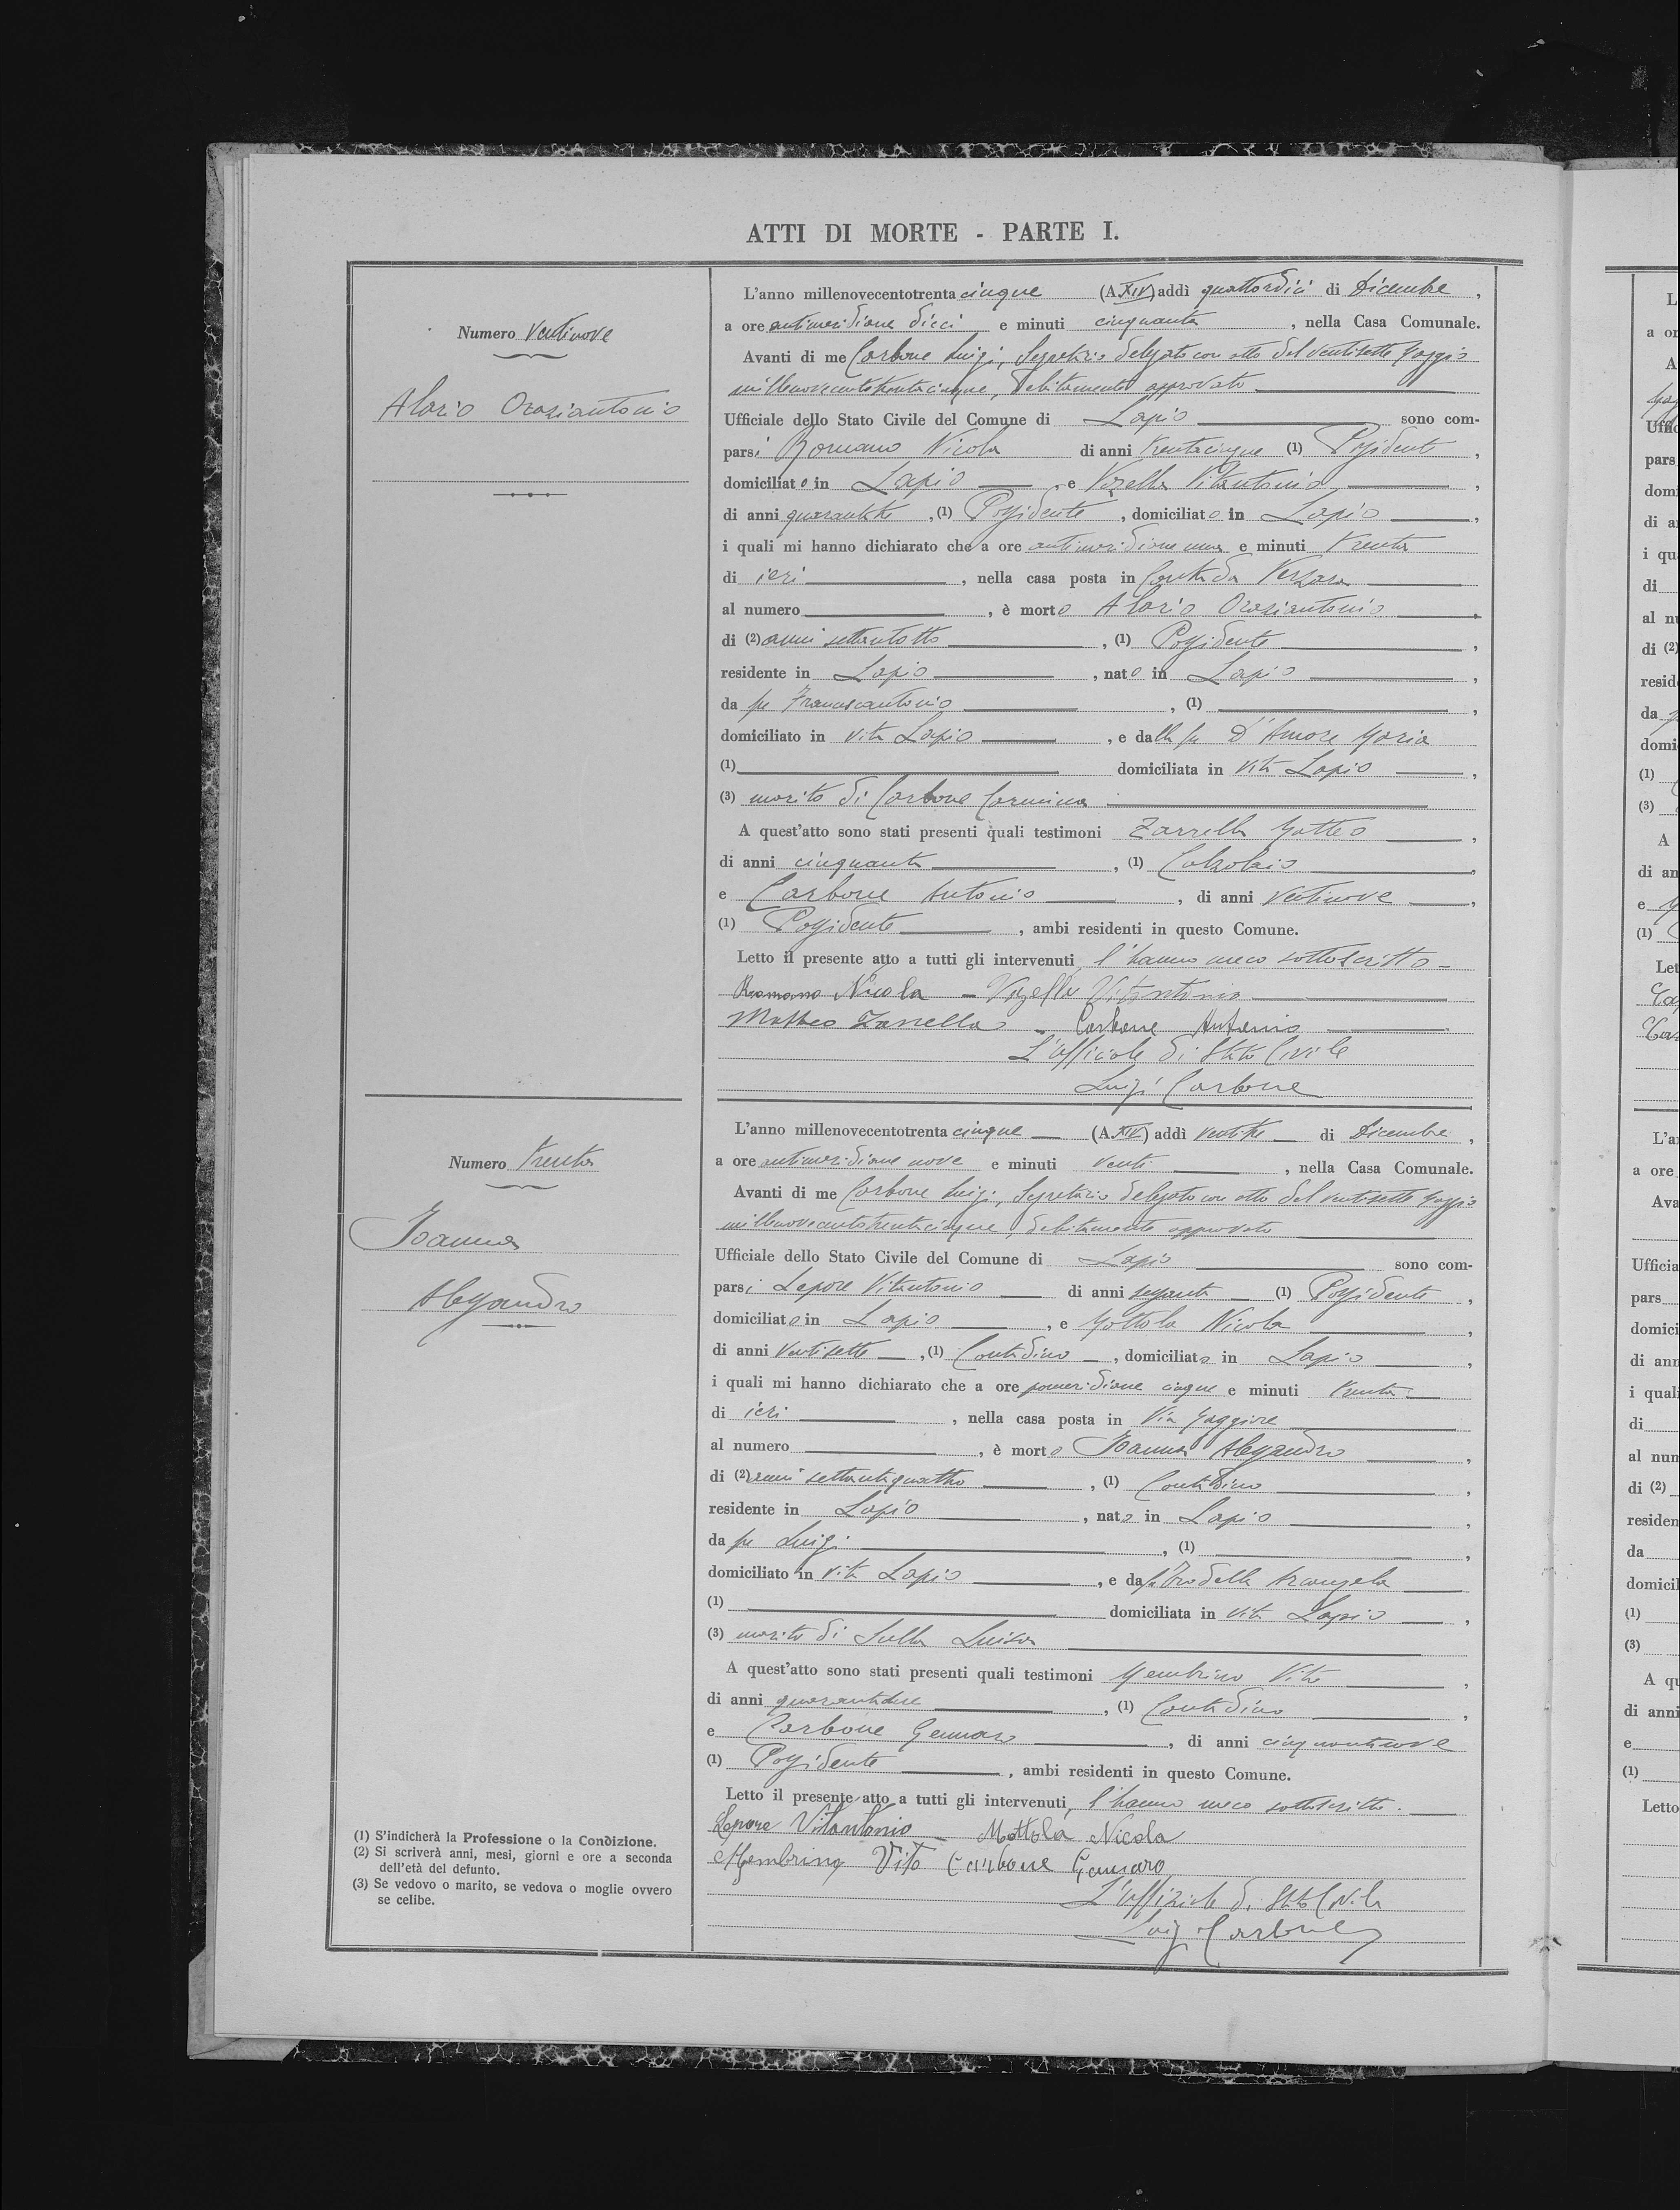 ATTI DI MORTE - PARTE I.
Numero Ventinove
Alario Oraziantonio
L'anno millenovecentotrenta cinque (A. XIV) addì quattordici di Dicembre,
a ore antimeridiane dieci e minuti cinquanta, nella Casa Comunale.
Avanti di me Carbone Luigi, Segretario delegato con atto del ventisette Maggio
millenovecentotrentacinque, debitamente approvato
Ufficiale dello Stato Civile del Comune di Lapio sono com-
parsi Romano Nicola di anni trentacinque (1) Possidente,
domiciliato in Lapio, e Vozella Vitantonio,
di anni quarantatre, (1) Possidente, domiciliato in Lapio,
i quali mi hanno dichiarato che a ore antimeridiane una e minuti trenta
di ieri, nella casa posta in Contrada
al numero, è morto Alario Oraziantonio,
di (2) anni settantotto, (1) Possidente,
residente in Lapio, nato in Lapio,
da fu Francescantonio, (1),
domiciliato in vita Lapio, e dalla fu D'Amore Maria
(1) domiciliata in vita Lapio,
(3) marito di Carbone Carmina
A quest'atto sono stati presenti quali testimoni Zarrella Matteo,
di anni cinquanta, (1) Calzolaio,
e Carbone Antonio, di anni ventinove,
(1) Possidente, ambi residenti in questo Comune.
Letto il presente atto a tutti gli intervenuti l'hanno meco sottoscritto -
Romano Nicola - Vozella Vitantonio
Matteo Zarrella - Carbone Antonio
L'Ufficiale di Stato Civile
Luigi Carbone
Numero Trenta
Ioanna
Alessandro
L'anno millenovecentotrenta cinque (A. XIV) addì ventitre di Dicembre,
a ore antimeridiane nove e minuti venti, nella Casa Comunale.
Avanti di me Carbone Luigi, Segretario delegato con atto del ventisette Maggio
millenovecentotrentacinque, debitamente approvato
Ufficiale dello Stato Civile del Comune di Lapio sono com-
parsi Lepore Vitantonio di anni sessanta (1) Possidente,
domiciliato in Lapio, e Mottola Nicola,
di anni ventisette, (1) Contadino, domiciliato in Lapio,
i quali mi hanno dichiarato che a ore pomeridiane cinque e minuti trenta
di ieri, nella casa posta in Via Maggiore
al numero, è morto Ioanna Alessandro,
di (2) anni settantaquattro, (1) Contadino,
residente in Lapio, nato in Lapio,
da fu Luigi, (1),
domiciliato in vita Lapio, e da fu Arcangela
(1) domiciliata in vita Lapio,
(3) marito di Luisa
A quest'atto sono stati presenti quali testimoni Membrino Vito,
di anni quarantadue, (1) Contadino,
e Carbone Gennaro, di anni cinquantanove
(1) Possidente, ambi residenti in questo Comune.
Letto il presente atto a tutti gli intervenuti, l'hanno meco sottoscritto.
Lepore Vitantonio - Mottola Nicola
Membrino Vito Carbone Gennaro
L'Uffiziale di Stato Civile
Luigi Carbone
(1) S'indicherà la Professione o la Condizione.
(2) Si scriverà anni, mesi, giorni e ore a seconda
dell'età del defunto.
(3) Se vedovo o marito, se vedova o moglie ovvero
se celibe.